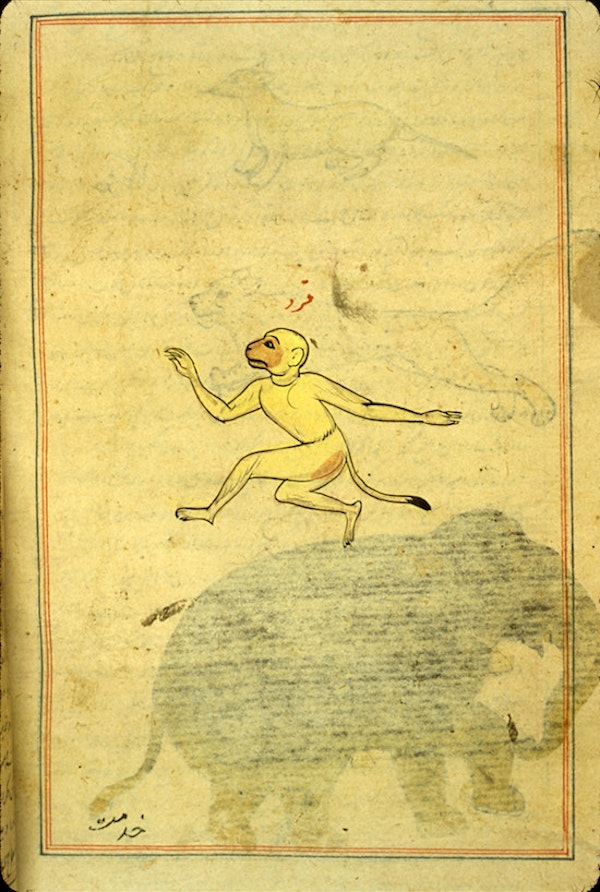 قرد
خدمت